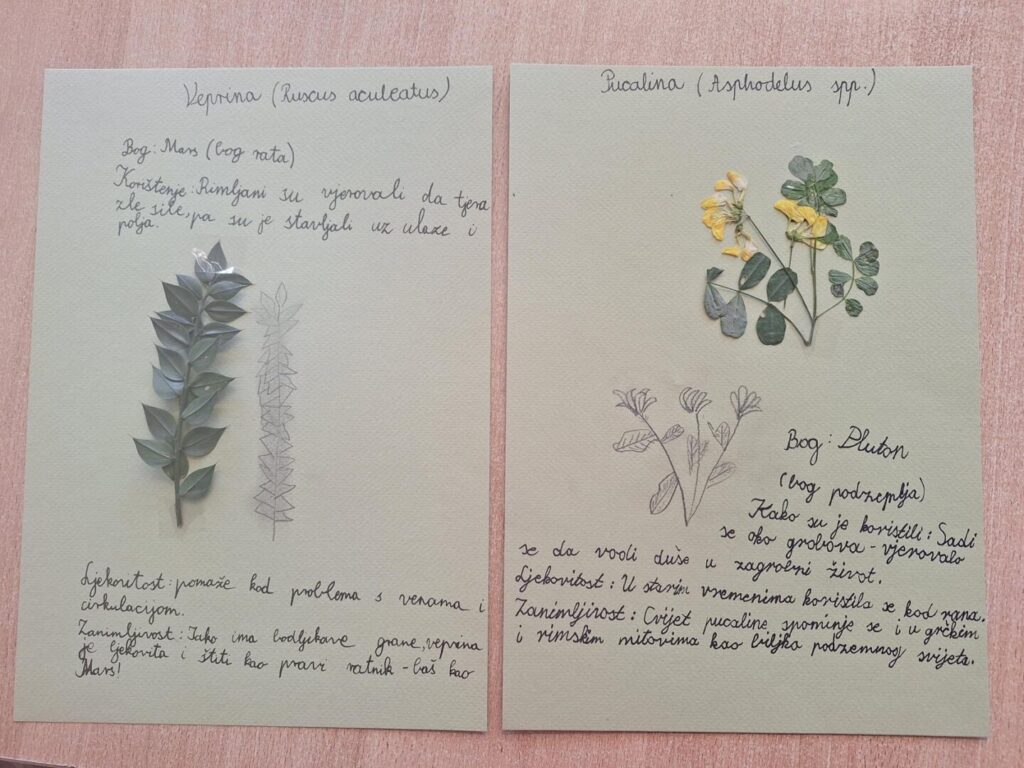 Veprina (Ruscus aculeatus)
Bog: Mars (bog rata)
Korištenje: Rimljani su vjerovali da tjera
zle sile, pa su je stavljali uz ulaze i
polja.
Ljekovitost: pomaže kod problema s venama i
cirkulacijom.
Zanimljivost: Iako ima bodljikave grane, veprina
je ljekovita i štiti kao pravi ratnik - baš kao
Mars!
Pucalina (Asphodelus spp.)
Bog: Pluton
(bog podzemlja)
Kako su je koristili: Sadi
se oko grobova - vjerovalo
se da vodi duše u zagrobni život.
Ljekovitost: U starim vremenima koristila se kod rana.
Zanimljivost: Cvijet pucaline spominje se i u grčkim
i rimskim mitovima kao biljka podzemnog svijeta.